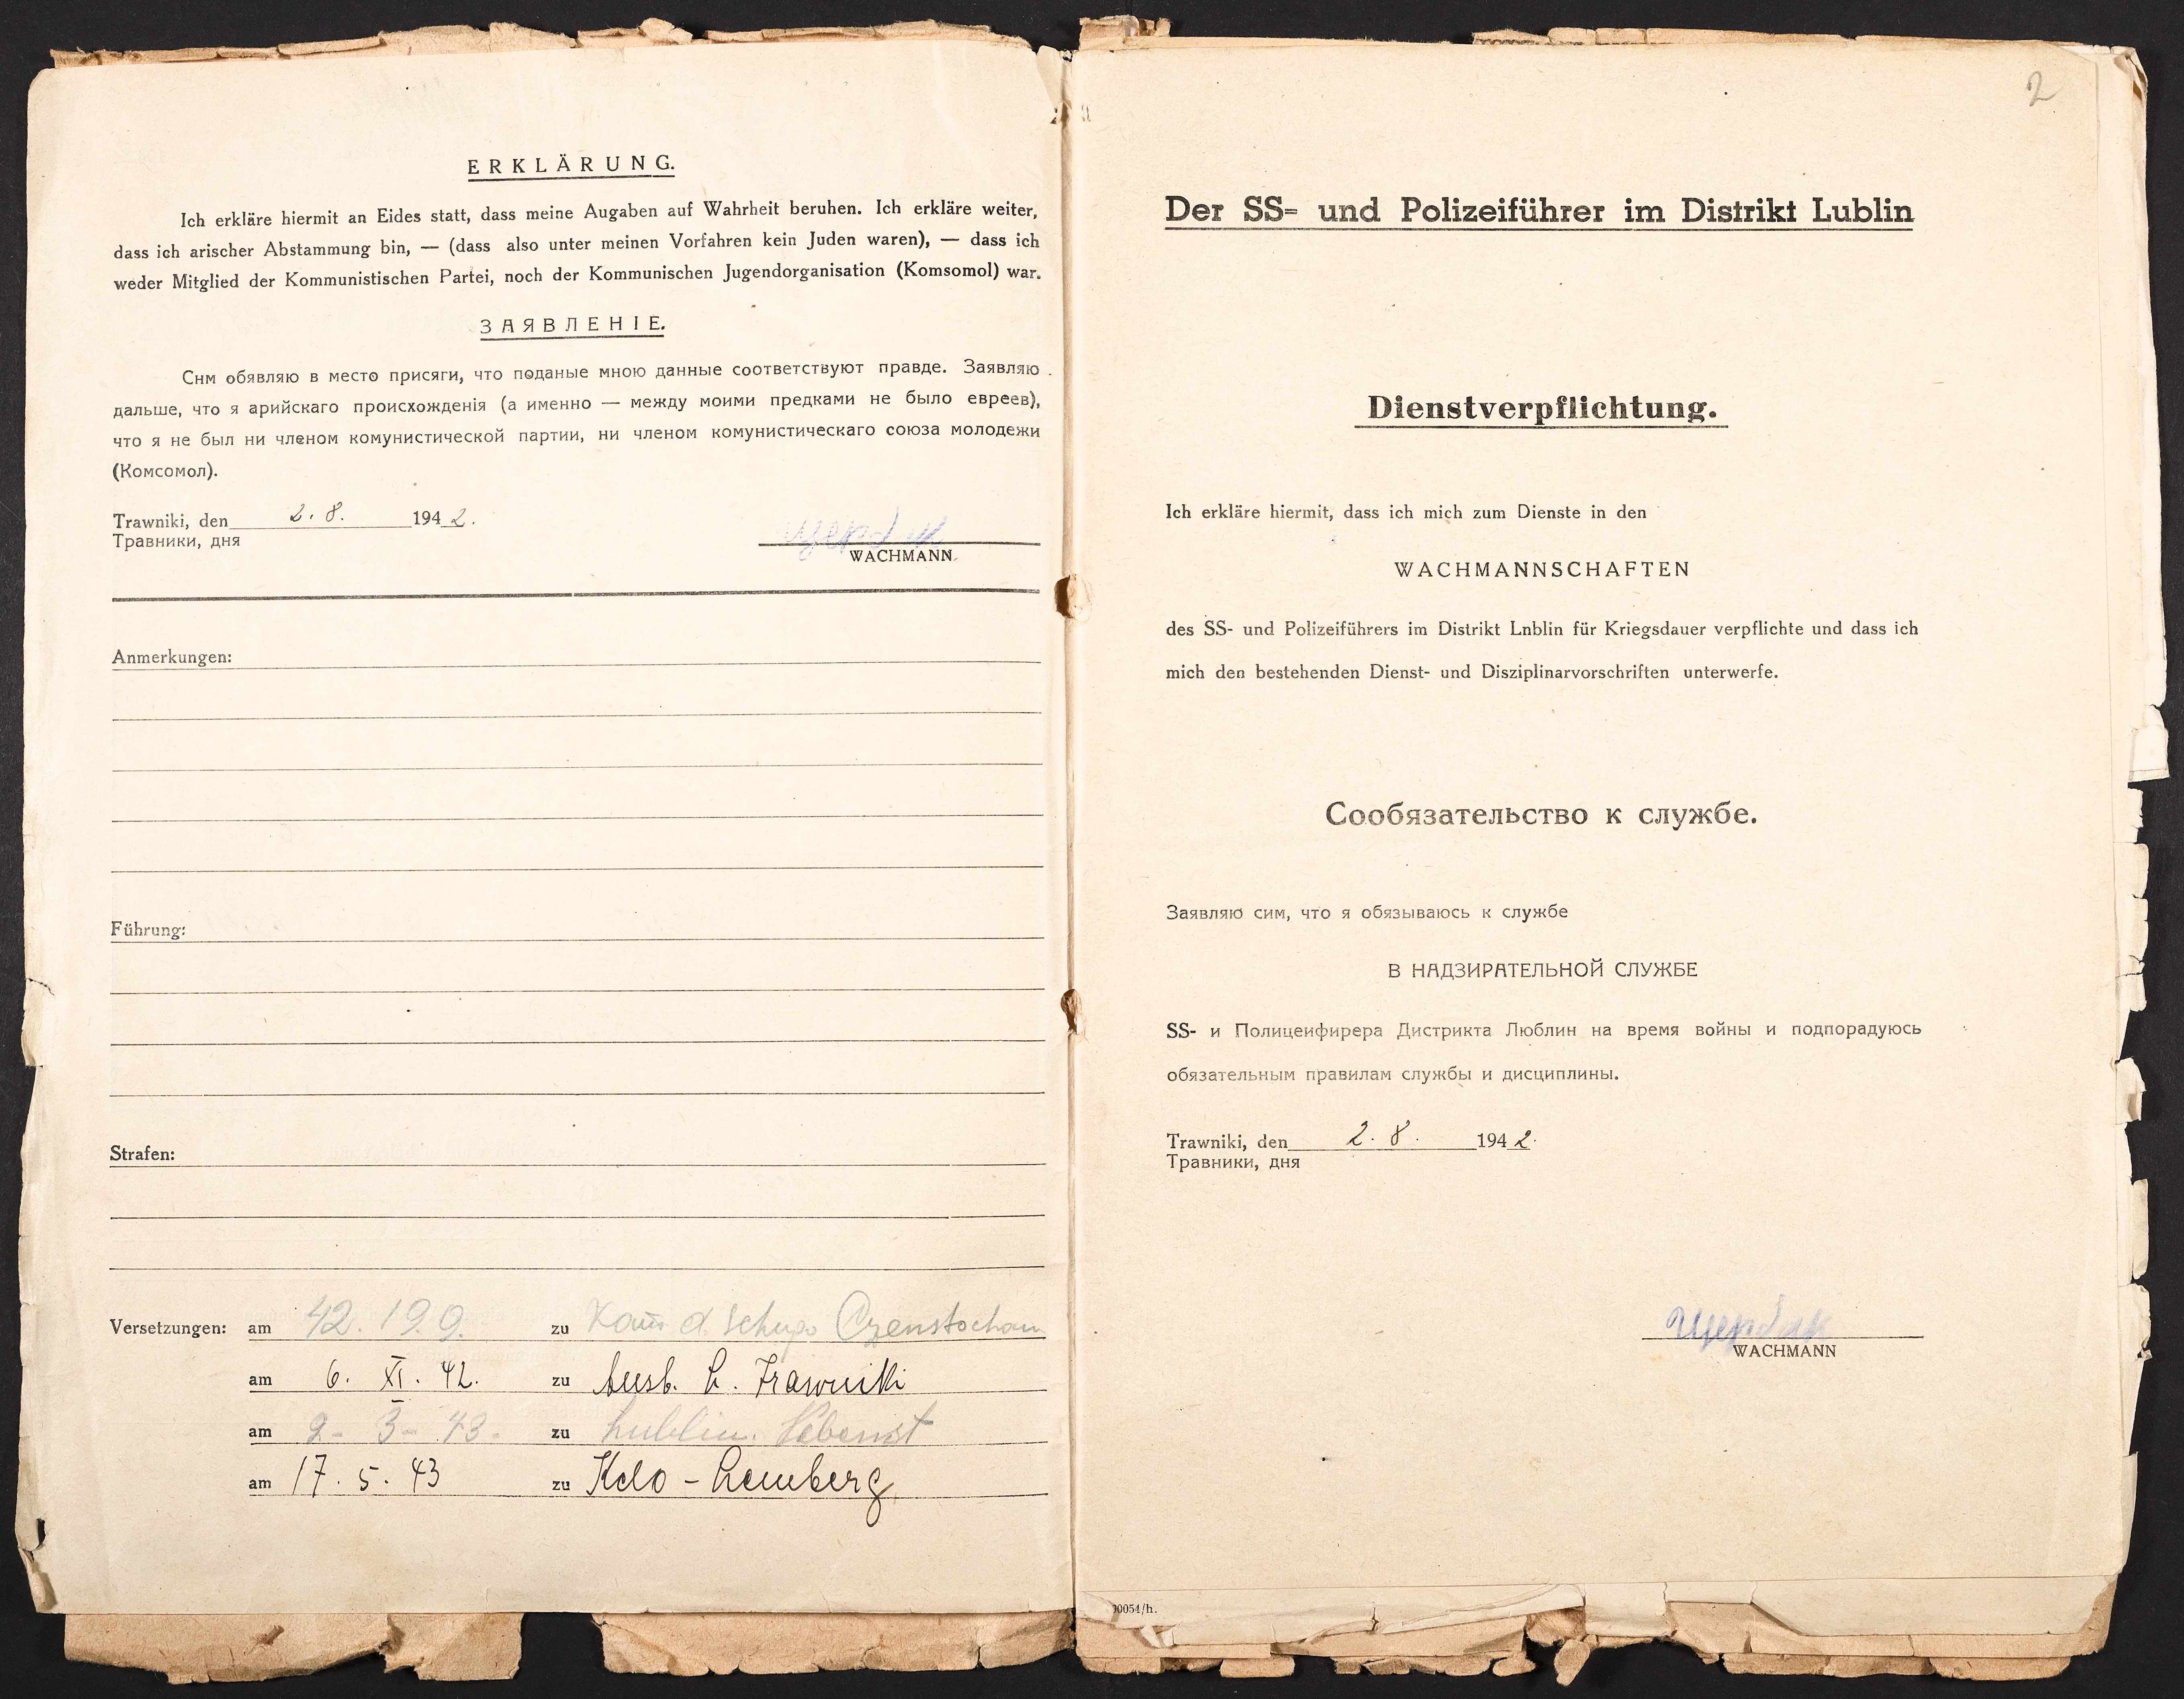 ERKLÄRUNG.
Ich erkläre hiermit an Eides statt, dass meine Augaben auf Wahrheit beruhen. Ich erkläre weiter,
dass ich arischer Abstammung bin, — (dass also unter meinen Vorfahren kein Juden waren), — dass ich
weder Mitglied der Kommunistischen Partei, noch der Kommunischen Jugendorganisation (Komsomol) war.
ЗАЯВЛЕНІЕ.
Снм обявляю в место присяги, что поданые мною данные соответствуют правде. Заявляю
дальше, что я арийскаго происхожденія (а именно — между моими предками не было евреев),
что я не был ни членом комунистической партии, ни членом комунистическаго союза молодежи
(Комсомол).
Trawniki, den 2. 8. 1942.
Травники, дня
Щербак
WACHMANN
Anmerkungen:
Führung:
Strafen:
Versetzungen: am 42. 19. 9. zu Kom d. Schupo Czenstochau
am 6. XI. 42. zu Ausb. L. Trawniki
am 2 - 3 - 43. zu Lublin.
am 17. 5. 43 zu Kdo - Lemberg
2
Der SS= und Polizeiführer im Distrikt Lublin
Dienstverpflichtung.
Ich erkläre hiermit, dass ich mich zum Dienste in den
WACHMANNSCHAFTEN
des SS- und Polizeiführers im Distrikt Lnblin für Kriegsdauer verpflichte und dass ich
mich den bestehenden Dienst- und Disziplinarvorschriften unterwerfe.
Сообязательство к службе.
Заявляю сим, что я обязываюсь к службе
В НАДЗИРАТЕЛЬНОЙ СЛУЖБЕ
SS- и Полицеифирера Дистрикта Люблин на время войны и подпорадуюсь
обязательным правилам службы и дисциплины.
Trawniki, den 2. 8. 1942.
Травники, дня
Щербак
WACHMANN
0054/h.